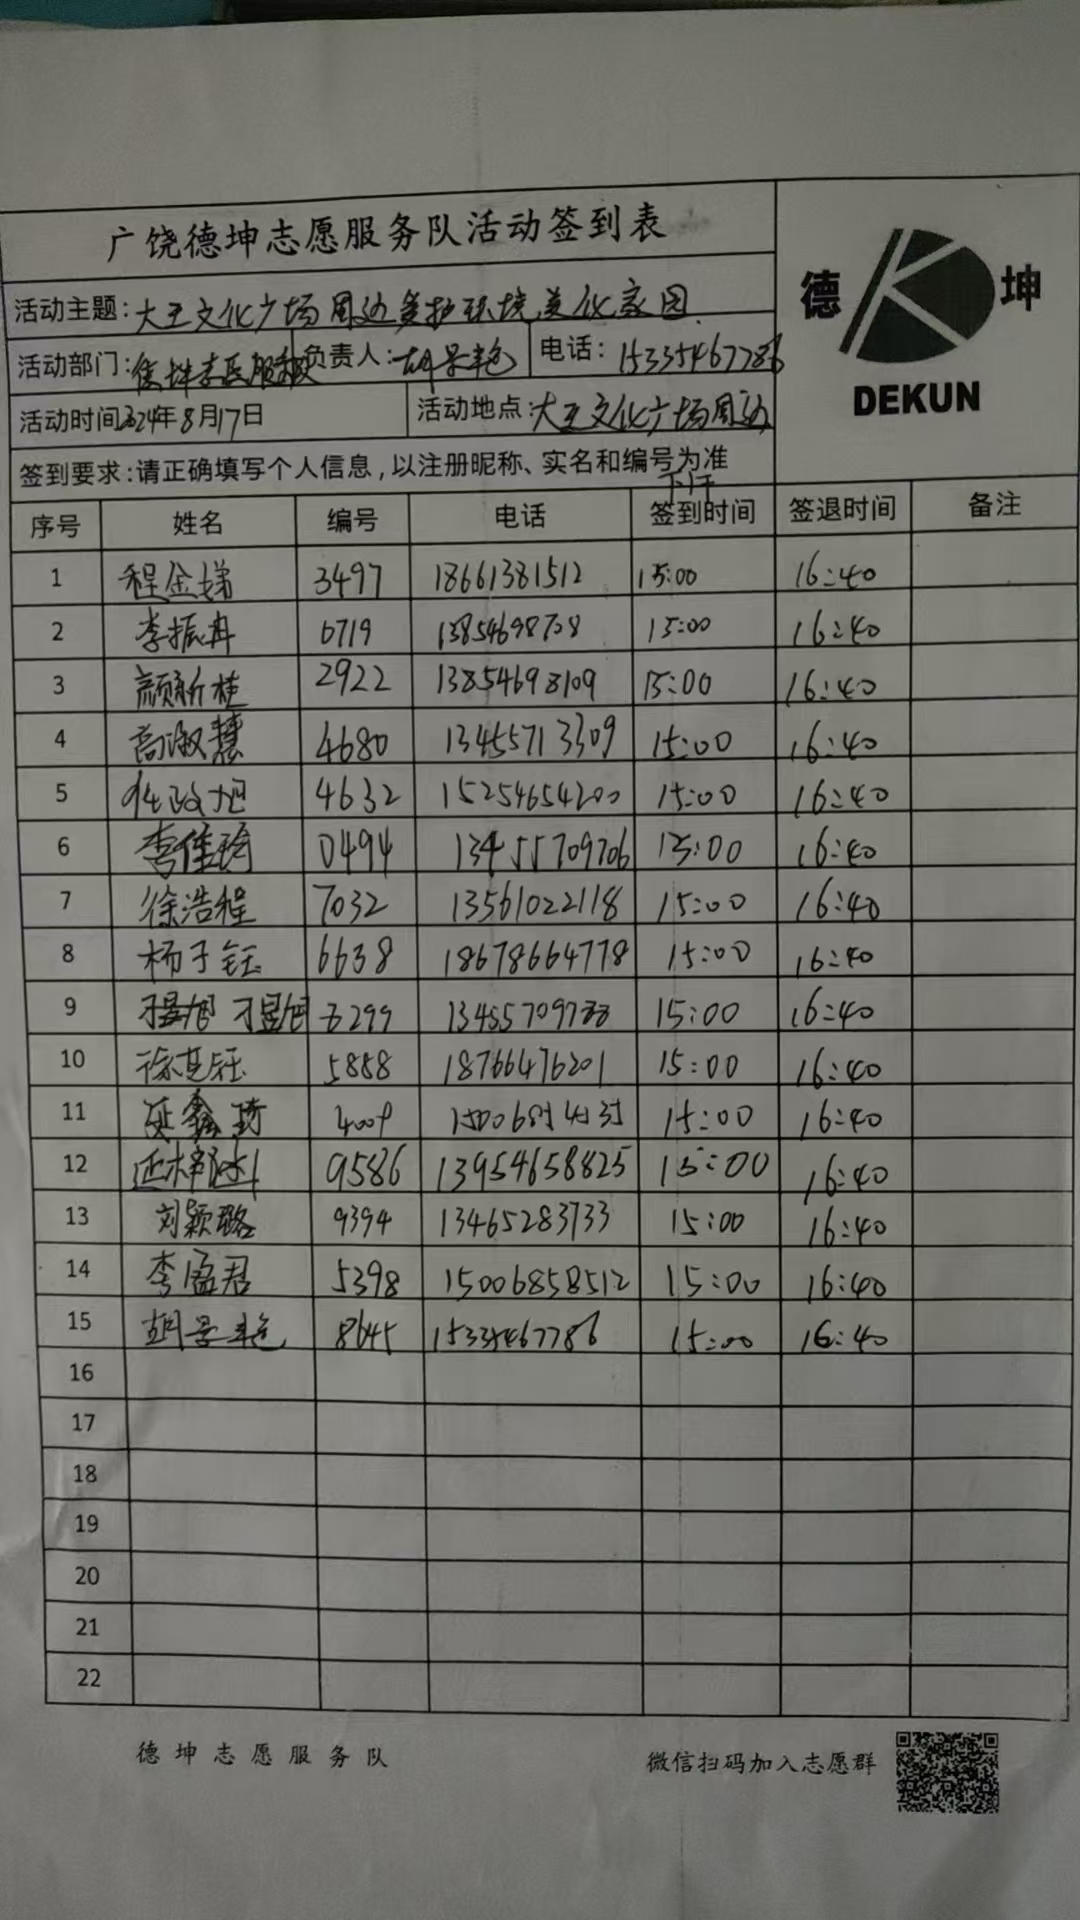 广饶德坤志愿服务队活动签到表
德 坤
DEKUN
活动主题:大王文化广场周边爱护环境美化家园
活动部门: 负责人:胡景艳 电话:15335467786
活动时间2024年8月17日 活动地点:大王文化广场周边
签到要求:请正确填写个人信息,以注册昵称、实名和编号为准
下午
序号 姓名 编号 电话 签到时间 签退时间 备注
1 程金娣 3497 18661381512 15:00 16:40
2 李振冉 6719 13854698708 15:00 16:40
3 颜新桂 2922 13854698109 15:00 16:40
4 高淑慧 4680 13455713309 15:00 16:40
5 4632 15254654200 15:00 16:40
6 李佳琦 0494 13455709706 15:00 16:40
7 徐浩程 7032 13561022118 15:00 16:40
8 杨子钰 6638 18678664778 15:00 16:40
9 15:00 16:40
10 5888 18766476201 15:00 16:40
11 延鑫琦 4009 15:00 16:40
12 9586 13954658825 15:00 16:40
13 刘颖璐 9394 13465283733 15:00 16:40
14 李盈君 5398 15006858512 15:00 16:40
15 胡景艳 8645 15335467786 15:00 16:40
16
17
18
19
20
21
22
德坤志愿服务队 微信扫码加入志愿群